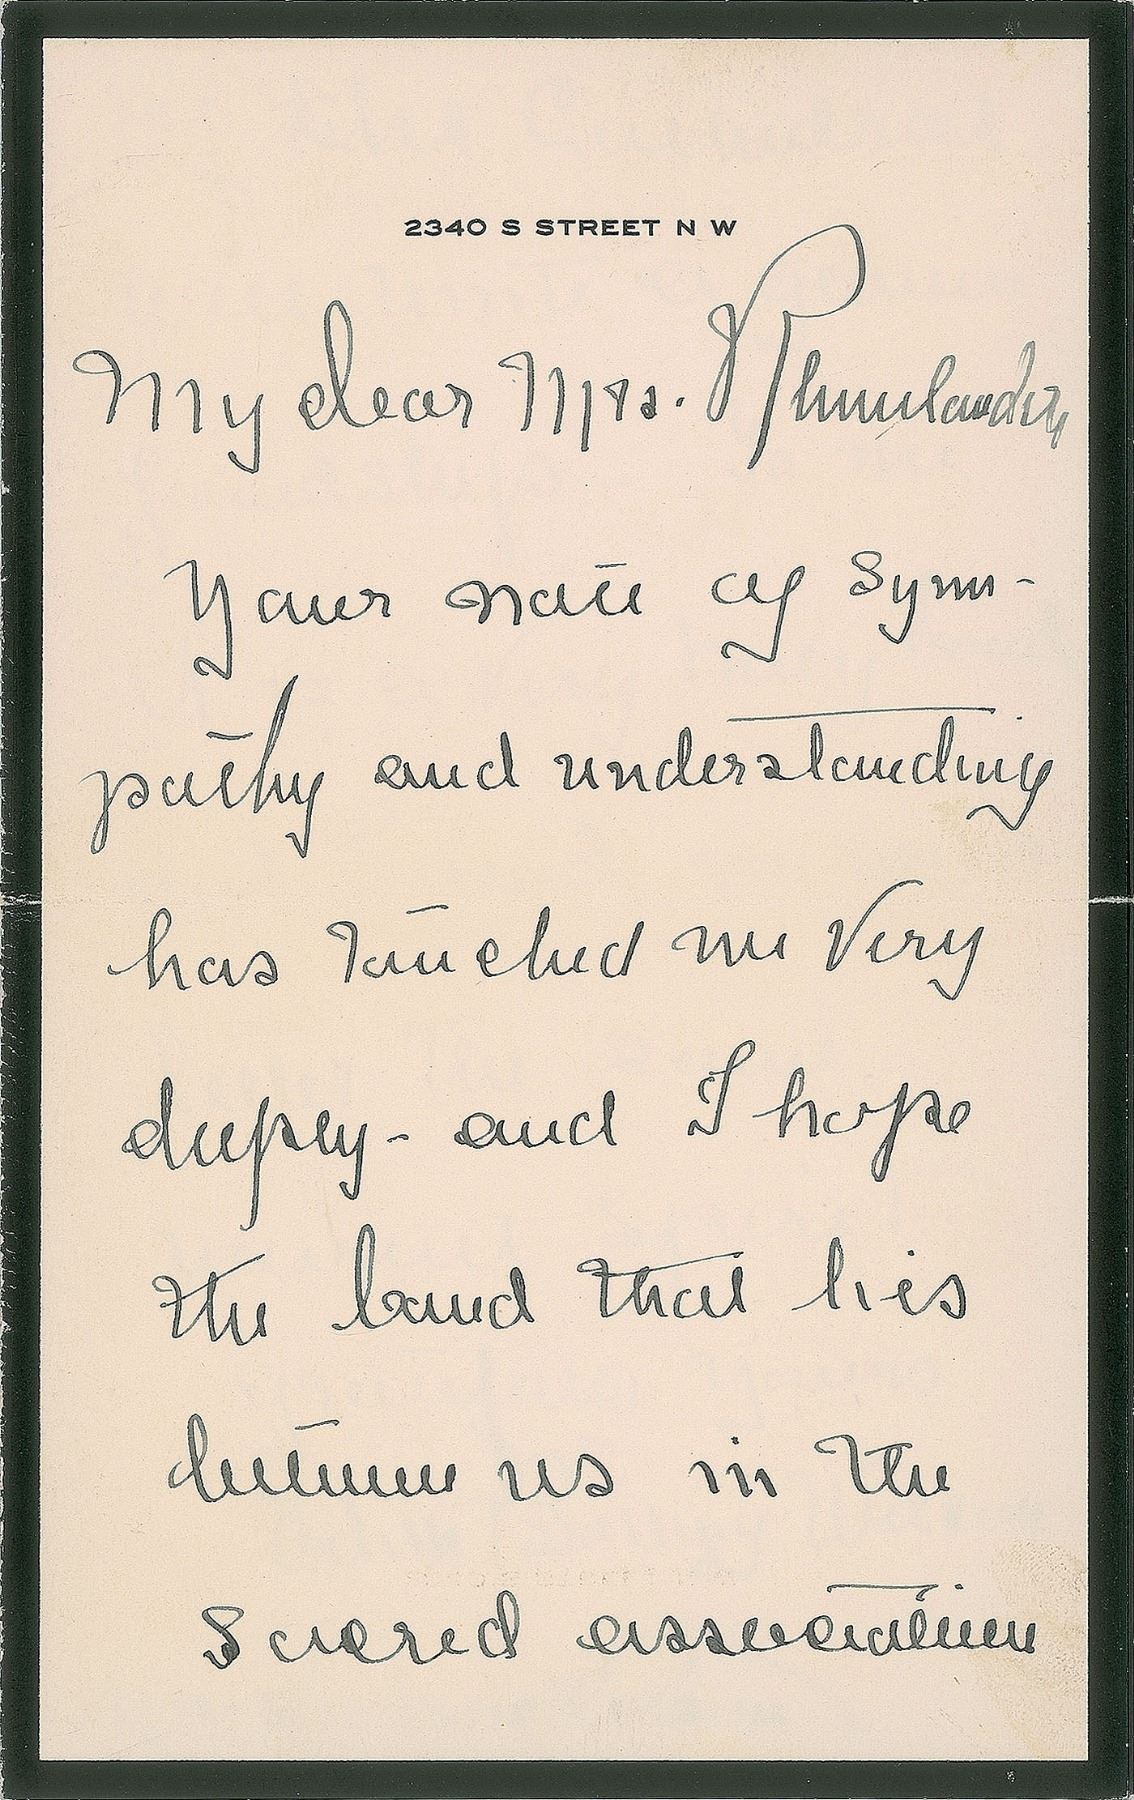 2340 S STREET N W
My dear Mrs. Rhinelander,
Your note of sym-
pathy and understanding
has touched me very
deeply - and I hope
the bond that lies
between us in the
Sacred association